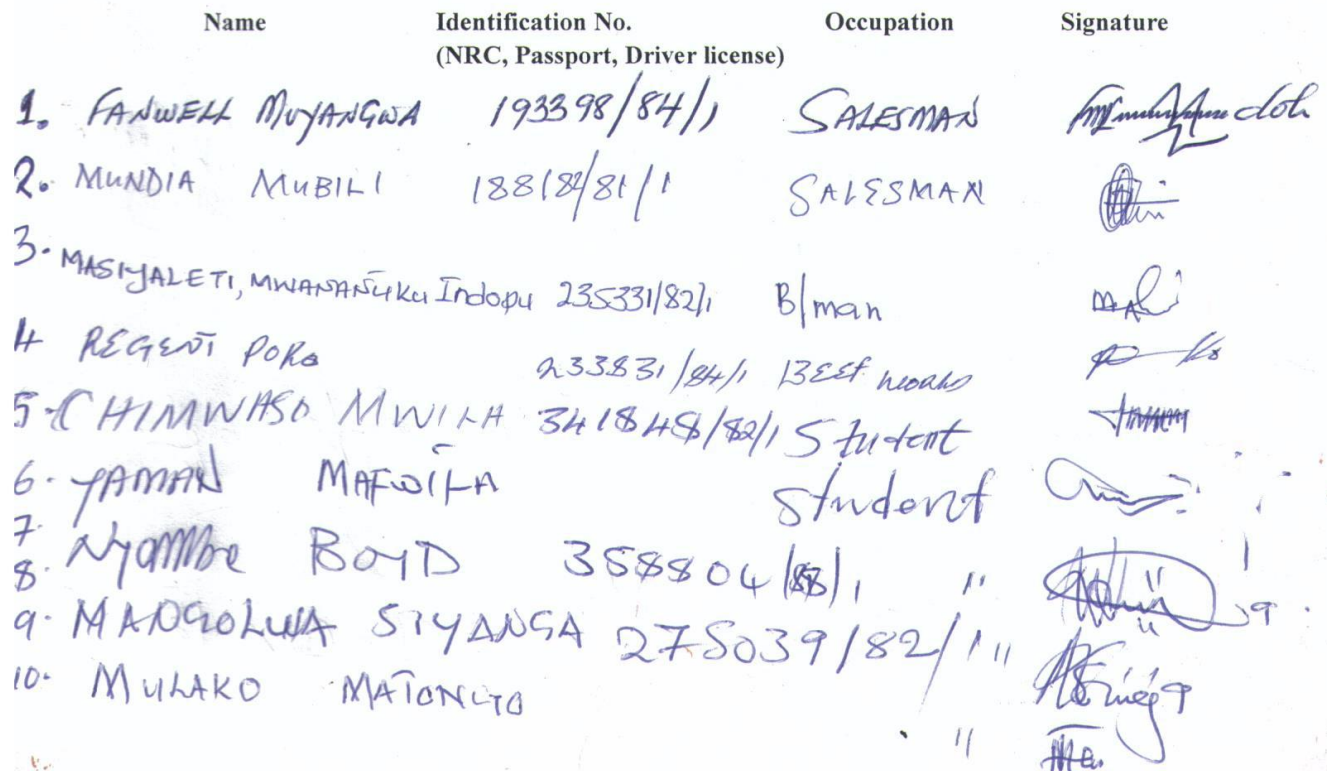 Name Identification No. Occupation Signature
(NRC, Passport, Driver license)
1. FANWELL MUYANGWA 193398/84/1 SALESMAN
2. MUNDIA MUBILI 188182/81/1 SALESMAN
3. MASIYALETI, MWANANUKU Indopu 235331/82/1 B/man
4 REGENT PORO 233831/84/1 BEEf
5. CHIMWASO MWILA 341848/82/1 Student
6. YAMAN MAFWILA Student
7.
8. Nyambe BOYD 358804/88/1 "
9. MANGOLWA SIYANGA 275039/82/1 "
10. MULAKO MATONGO "